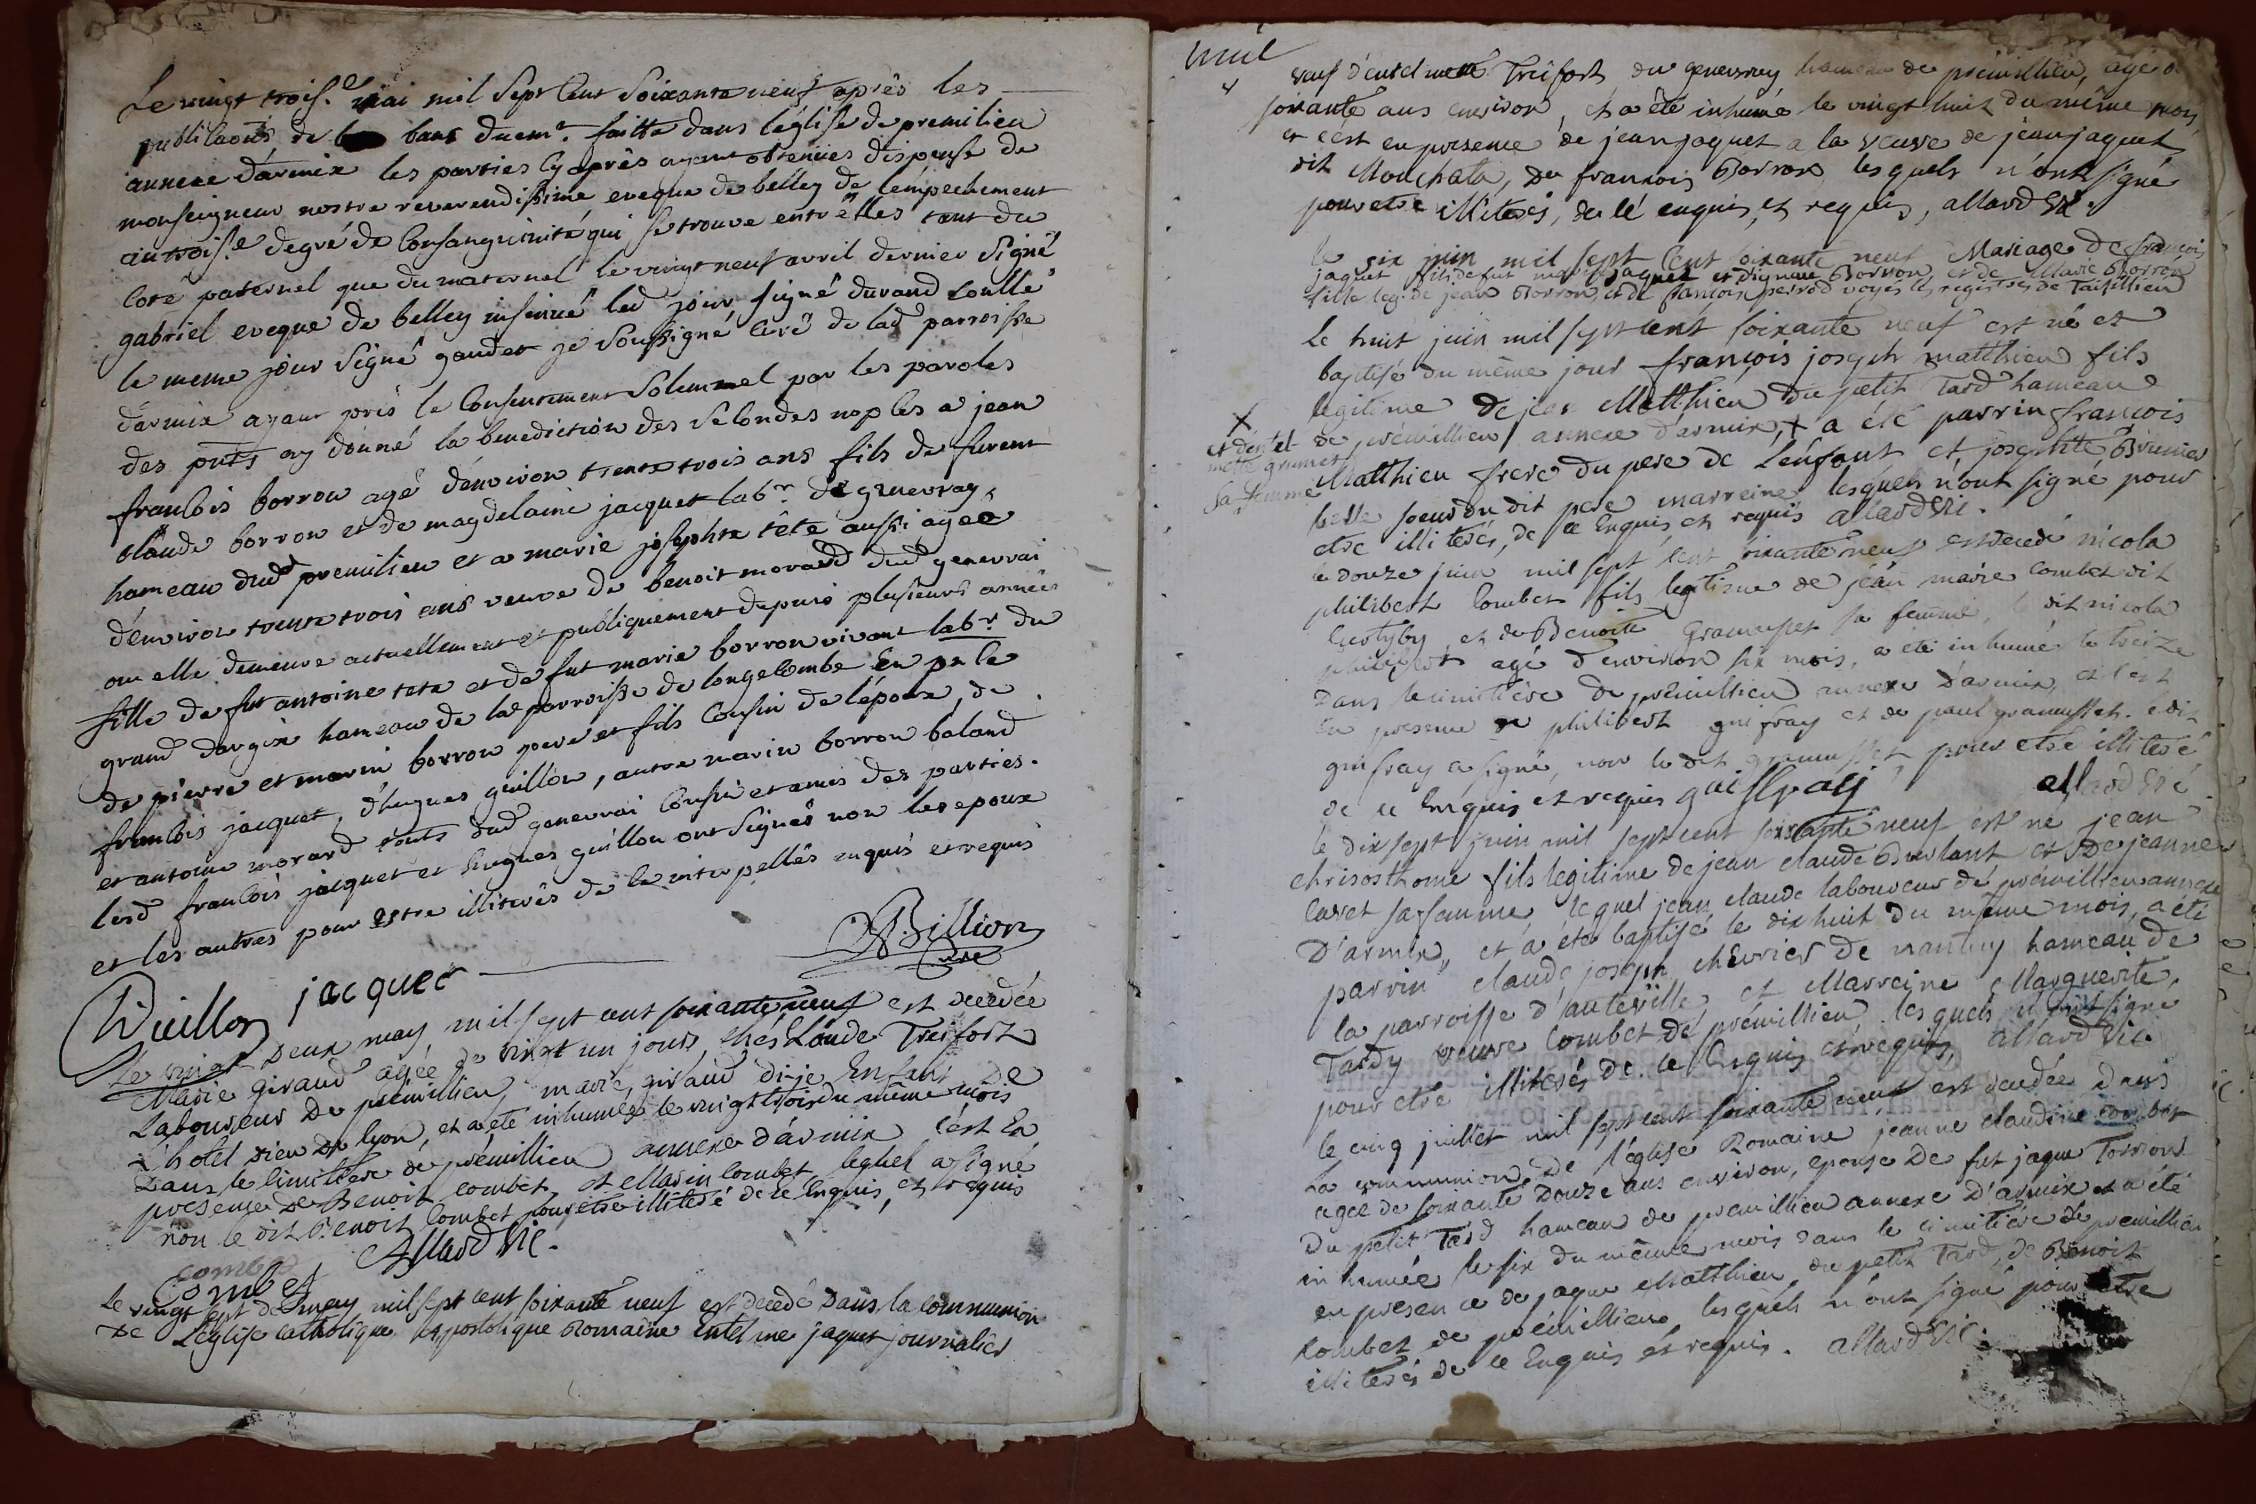 Le vingt trois.e mai mil Sept Cent Soixante neuf après les
publications de bans duem.t faitte dans l'église de premilieu
annexe d'armix les parties cy après ayant obtenües dispense de
monseigneur nostre reverendissime eveque de belley de l'empechement
au trois.e degré de Consanguinité qui se trouve entr'elles tant du
Coté paternel que du maternel le vingt neuf avril dernier Signé
gabriel eveque de belley insinué led jour signé durand
le meme jour Signé gaudet je Soussigné Curé de lad parroisse
d'armix ayant pris le Consentement Solemnel par les paroles
des pnts ay donné la benediction des Secondes nopces a jean
francois borron agé d'environ trente trois ans fils de furent
Claude borron et de magdelaine jacquet lab.r de genevray,
hameau dud premilieu et a marie josephte tête aussi agée
d'environ trente trois ans veuve de benoit morard dud genevrai
ou elle demeure actuellement et publiquement depuis plusieurs années
fille de fut antoine tete et de fut marie borron vivant lab.r du
grand dorgix hameau de lad parroisse de longecombe En pnce
de pierre et marin borron pere et fils Cousin de l'époux, de
francois jacquet, d'hugues guillon, autre marin borron baland
et antoine morard touts dud genevrai Cousin et amis des parties.
lesd francois jacquet et hugues guillon ont Signés non les epoux
et les autres pour estre illiterés de Ce interpellés enquis et requis
Billion
Curé
Guillon jacquet
Le vingt Deux may mil sept cent soixante neuf est decedée
Marie giraud agée de vingt un jours, chés Claude Treifort
Laboureur De prémillieu, marie giraud di-je Enfant De
L'hotel dieu de lyon, et a été inhumée le vingt trois du même mois
Dans le Cimitiere de prémillieu annexe d'armix C'est En
presence De Benoit combet et Marin Combet lequel a signé
non le dit Benoit Combet pour etre illiteré de ce Enquis, et requis
Combet Allard Vic.
Le vingt sept de may mil sept cent soixante neuf est decedé Dans la Communion
De L'église Catholique Apostolique Romaine Entelme jaquet journalier
veuf d'entelmette Treifort du genevray hameau de prémillieu, agé de
soixante ans environ, et a été inhumé le vingt huit du même mois
et c'est en presence de jean jaquet a la veuve de jean jaquet
dit Mouchata, de francois Borron lesquels n'ont signé
pour etre illiterés, de ce enquis, et requis, allard Vic.
le six juin mil sept Cent soixante neuf Mariage de francois
jaquet fils de fut jaquet et Borron, et de Marie Borron
fille leg. de jean Borron et de francoise perrod voyés les registres de
Le huit juin mil sept cent soixante neuf est né et
baptisé du même jour françois joseph matthieu fils
legitime De jean Matthieu du petit Tard hameau
de prémillieu annexe d'armix, X a été parrin françois
X
et d'entel
mette grumet
sa femme
Matthieu frere du pere de L'enfant et josephte Brunier
belle soeur du dit pere marreine lesquels n'ont signé pour
etre illiterés, de ce Enquis, et requis allard Vic.
le Douze juin mil sept Cent soixante neuf est decedé nicola
philibert Combet fils legitime de jean marie Combet dit
et de Benoite Gramusset sa femme, le dit nicola
philibert agé d'environ six mois, a été inhumé le treize
Dans le cimitière de prémillieu annexe d'armix, et c'est
En presence de philibert guifray et de paul gramusset. le dit
guifray a signé, non le dit gramusset pour etre illiteré
de ce Enquis et requis guifray allard Vic
le dix sept juin mil sept cent soixante neuf est né jean
chrisosthome fils legitime de jean claude Burlant et De jeanne
Caret sa femme, lequel jean claude laboureur de prémillieu annexe
D'armix, et a été baptisé le dix huit du même mois, a été
parrin claude joseph chevrier de nantuy hameau de
la parroisse d'auteville, et Marreine Marguerite,
Tardy veuve Combet de prémillieu lesquels n'ont signé
pour etre illiterés De ce Enquis et requis, allard Vic.
le cinq juillet mil sept cent soixante neuf est decedée Dans
La communion De l'église Romaine jeanne claudine combet
agée De soixante Douze ans environ, epouse De fut jaque
Du petit Tard hameau de premillieu annexe D'armix et a été
inhumée le six du même mois dans le cimitière de premillieu
en presence de jaque Matthieu du petit Tard, de Benoit
Combet de prémillieu, lesquels n'ont signé pour etre
illiterés de ce Enquis et requis. allard Vic.